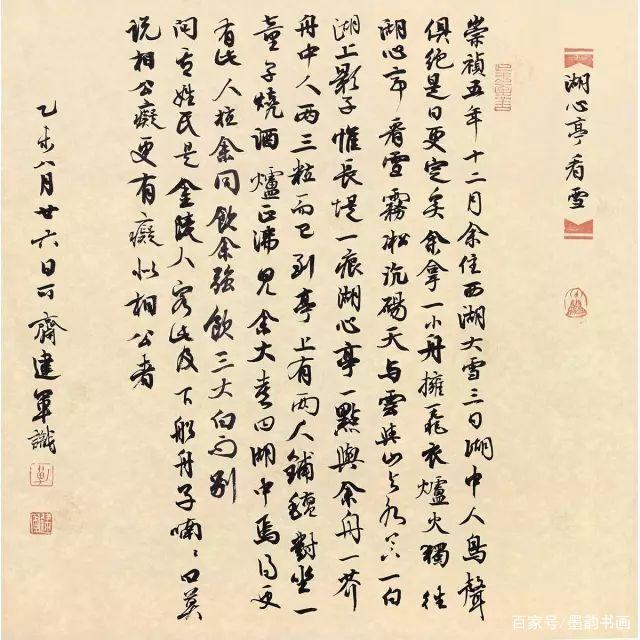 湖心亭看雪
崇禎五年十二月余住西湖大雪三日湖中人鳥聲
俱絕是日更定矣余拿一小舟擁毳衣爐火獨往
湖心亭看雪霧凇沆碭天与雲與山与水上下一白
湖上影子惟長堤一痕湖心亭一點與余舟一芥
舟中人兩三粒而已到亭上有兩人鋪氈對坐一
童子燒酒爐正沸見余大喜曰湖中焉得更
有此人拉余同飲余強飲三大白而別
問其姓氏是金陵人客此及下船舟子喃々曰莫
說相公癡更有癡似相公者
乙未八月廿六日可齋建軍識
百家号/墨韵书画